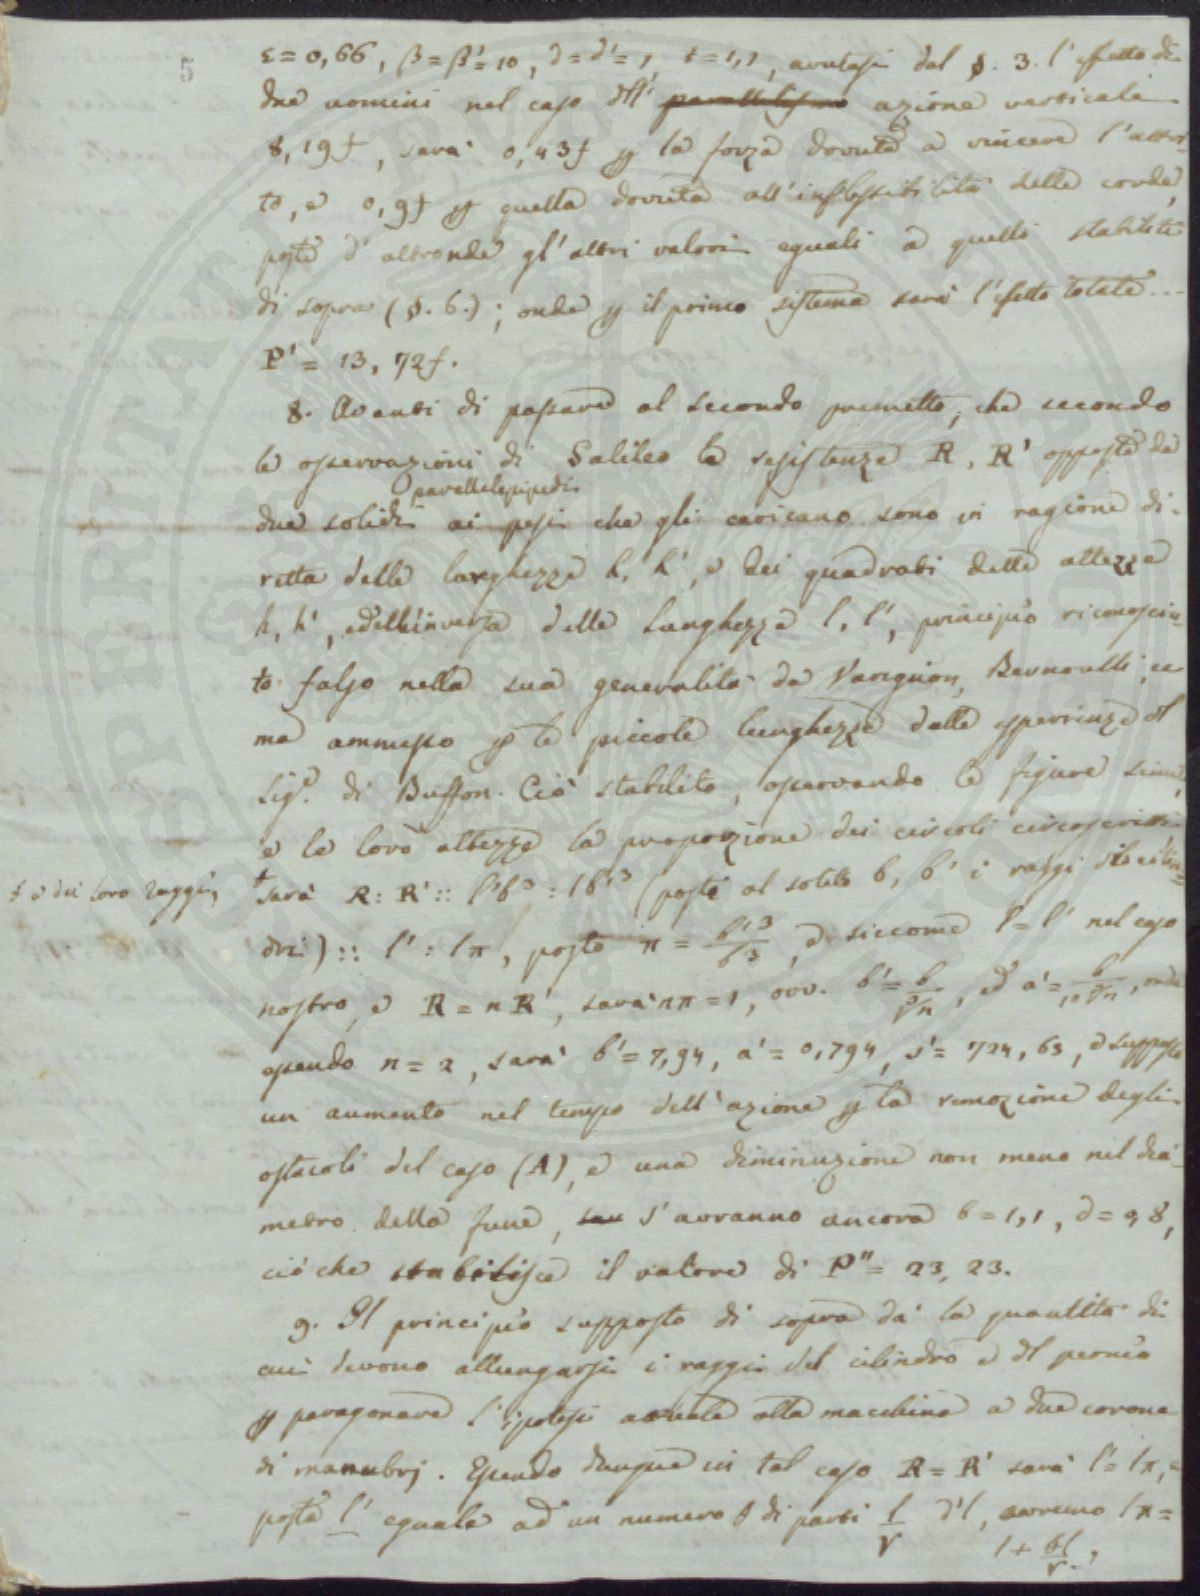 5
ε=0,66, β=β'=10, d=d'=1, t=1,1, avutasi dal §. 3. l'effetto di
due uomini nel caso dell' parallelismo azione verticale
8,19f, sarà 0,43f p la forza dovuta a vincere l'attri-
to, e 0,9f p quella dovuta all'inflessibilità delle corde,
poste d'altronde gl'altri valori eguali a quelli stabiliti
di sopra (§. 6.); onde p il primo sistema sarà l'effetto totale...
P' = 13,72f.
8. Avanti di passare al secondo premetto, che secondo
le osservazioni di Galileo le resistenze R, R' opposte da
parallelepipedi
due solidi ai pesi che gli caricano sono in ragione di-
retta delle larghezze h, h', e dei quadrati delle altezze
h, h', e dell'inversa delle lunghezze l, l', principio riconosciu-
to falso nella sua generalità da Varignon, Bernoulli,
ma ammesso p le piccole lunghezze dalle sperienze del
Sigr. di Buffon. Ciò stabilito, osservando le figure simili,
e le loro altezze la proporzione dei circoli circoscritti
+ e dei loro raggi,
+ sarà R : R' :: l'b³ : lb'³ (poste al solito b, b' i raggi de cilin-
dri) :: l' : lπ, posto π = b'³/b³, e siccome l=l' nel caso
nostro, e R = nR', sarà nπ=1, ovv. b'=b/∛n, ed a'=b/10∛n, onde
essendo n=2, sarà b'=7,94, a'=0,794, s'=724,63, e supposto
un aumento nel tempo dell'azione p la remozione degli
ostacoli del caso (A), e una diminuzione non meno nel dia-
metro della fune, s'avranno ancora 6=1,1, d=9,8,
ciò che stabilisce il valore di P''=23,23.
9. Il principio supposto di sopra dà la quantità di
cui devono allungarsi i raggi del cilindro e del pernio
p paragonare l'ipotesi attuale alla macchina a due corone
di manubrj. Essendo dunque in tal caso R=R' sarà l'=lπ, e
posto l' eguale ad un numero 6 di parti l/r d'l, avremo lπ=
l+6l/r,